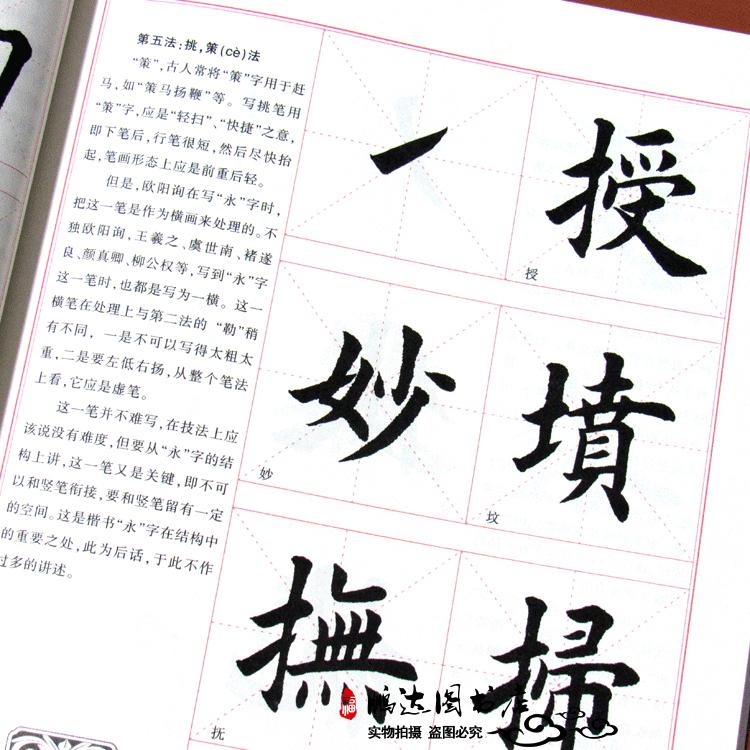 第五法：挑，策(cè)法
“策”，古人常将“策”字用于赶
马，如“策马扬鞭”等。写挑笔用
“策”字，应是“轻扫”、“快捷”之意，
即下笔后，行笔很短，然后尽快抬
起，笔画形态上应是前重后轻。
但是，欧阳询在写“永”字时，
把这一笔是作为横画来处理的。不
独欧阳询，王羲之、虞世南、褚遂
良、颜真卿、柳公权等，写到“永”字
这一笔时，也都是写为一横。这一
横笔在处理上与第二法的“勒”稍
有不同，一是不可以写得太粗太
重，二是要左低右扬，从整个笔法
上看，它应是虚笔。
这一笔并不难写，在技法上应
该说没有难度，但要从“永”字的结
构上讲，这一笔又是关键，即不可
以和竖笔衔接，要和竖笔留有一定
的空间。这是楷书“永”字在结构中
的重要之处，此为后话，于此不作
过多的讲述。
授
授
妙
妙
墳
坟
撫
抚
掃
福
鹏达图书店
实物拍摄 盗图必究